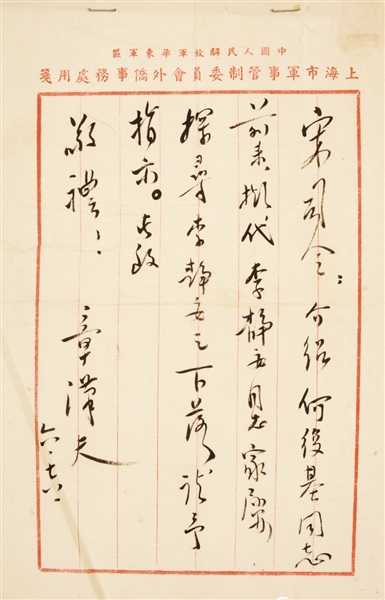 中國人民解放軍華東軍區
上海市軍事管制委員會外僑事務處用箋
宋司令：介紹何復基同志
前來擬代李靜安同志家屬
探尋李靜安之下落請予
指示。此致
敬禮！
章漢夫